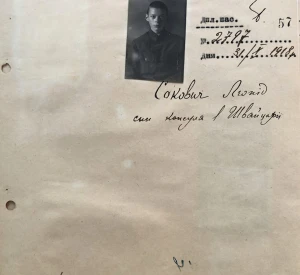 Дпл. пас. Д. 57
№ 2797
дня 31/X 1918 р.
Сокович Леонід
син консула в Швайцарії